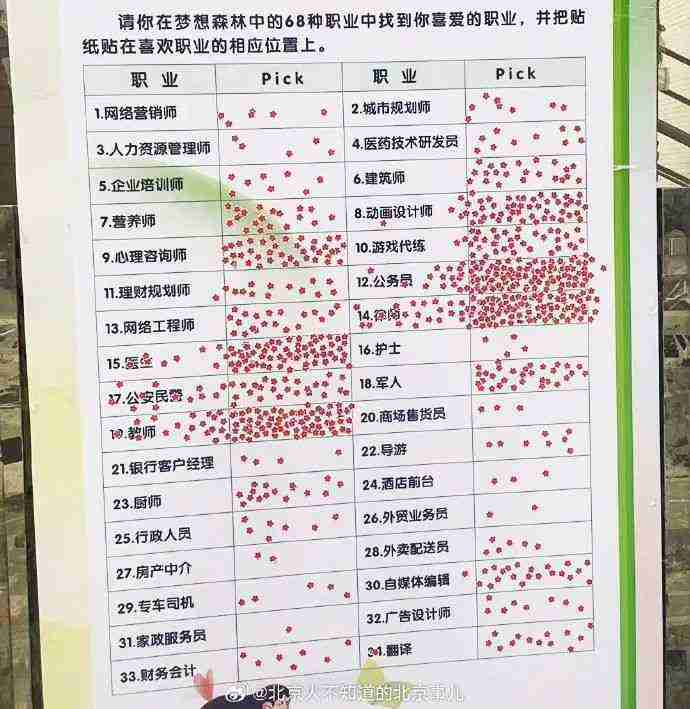 请你在梦想森林中的68种职业中找到你喜爱的职业，并把贴
纸贴在喜欢职业的相应位置上。
职 业 Pick 职 业 Pick
1.网络营销师 2.城市规划师
3.人力资源管理师 4.医药技术研发员
5.企业培训师 6.建筑师
7.营养师 8.动画设计师
9.心理咨询师 10.游戏代练
11.理财规划师 12.公务员
13.网络工程师 14.
15.医生 16.护士
17.公安民警 18.军人
19.教师 20.商场售货员
21.银行客户经理 22.导游
23.厨师 24.酒店前台
25.行政人员 26.外贸业务员
27.房产中介 28.外卖配送员
29.专车司机 30.自媒体编辑
31.家政服务员 32.广告设计师
33.财务会计 34.翻译
@北京人不知道的北京事儿